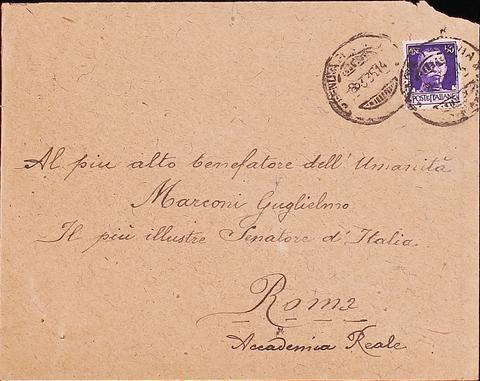 8.3.35.14
50
POSTE ITALIANE
Al piu alto benefatore dell' Umanità
Marconi Guglielmo
Il piú illustre Senatore d' Italia
Roma
Accademia Reale